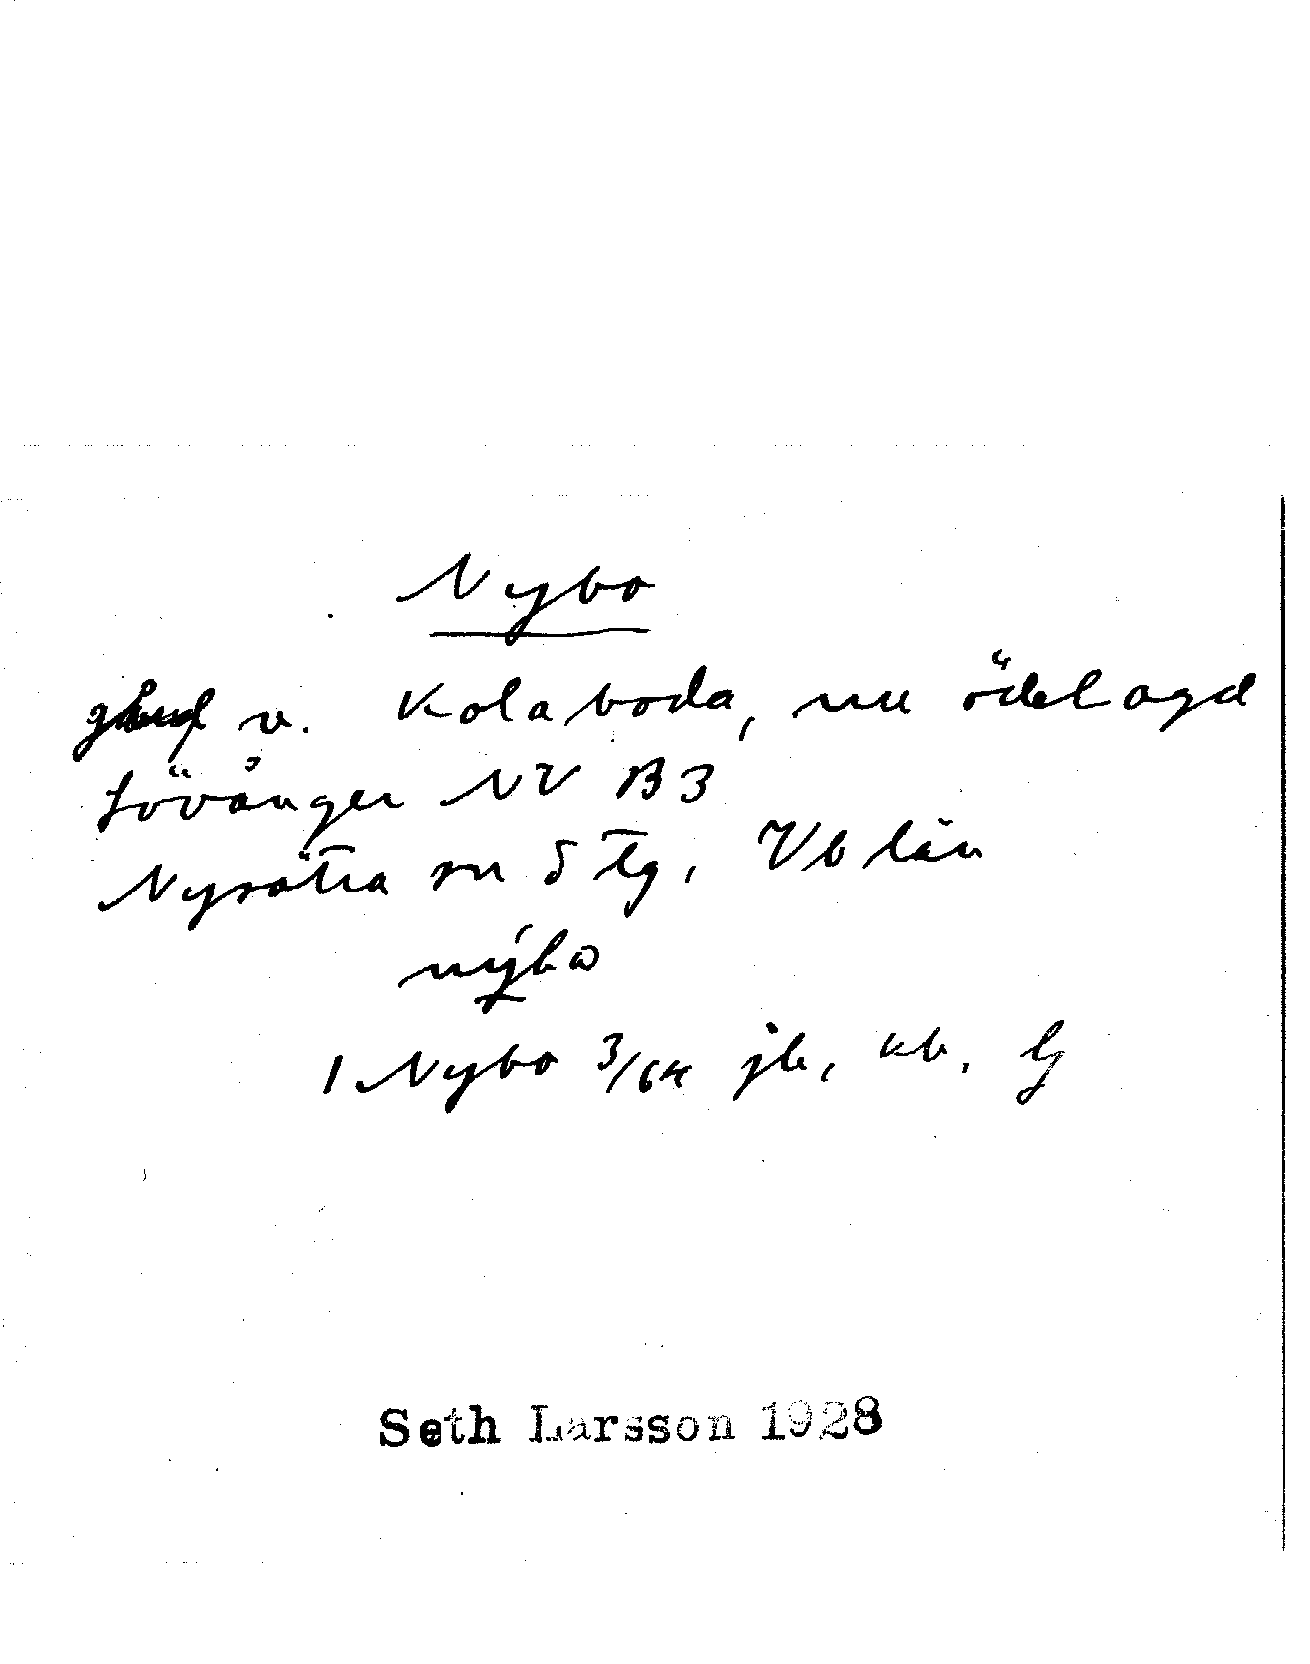 Nybo
v. Kolaboda, nu ödelagd
Lövånger NV B3
Nysätra sn S tg, Vb län
nýbω
1 Nybo 3/64 jb, kb, lj
Seth Larsson 1928